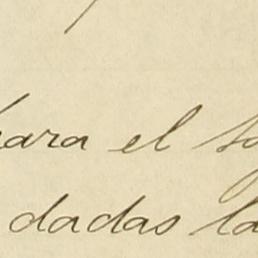 para el
dadas la